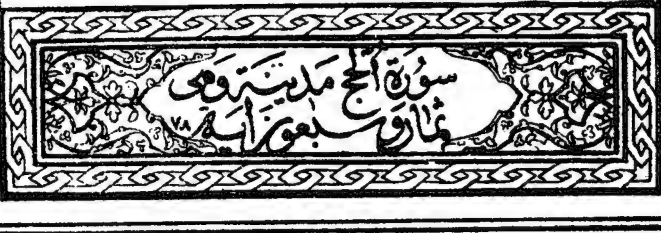 سُورَةُ الْحَجّ مَدَنِيَّة وَهِى
ثَمَان وَسَبْعُونَ اٰيَة ٧٨